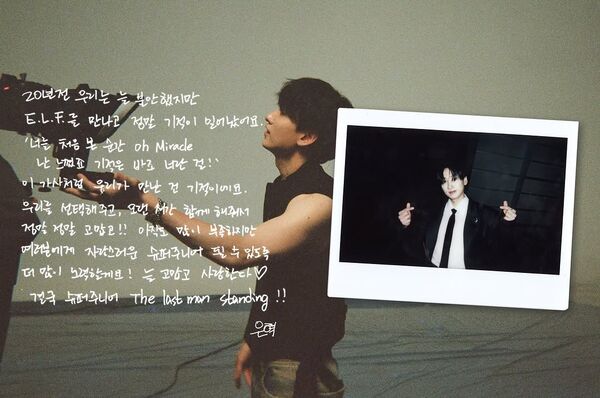 20년전 우리는 늘 불안했지만
E.L.F.를 만나고 정말 기적이 일어났어요.
'너를 처음 본 순간 oh Miracle
난 느꼈죠 기적은 바로 너란 걸!'
이 가사처럼 우리가 만난 건 기적이에요.
우리를 선택해주고, 오랜 시간 함께 해줘서
정말 정말 고마워!! 아직도 많이 부족하지만
여러분에게 자랑스러운 슈퍼주니어 될 수 있도록
더 많이 노력할게요! 늘 고맙고 사랑한다♡
결국 슈퍼주니어 The last man standing !!
은혁